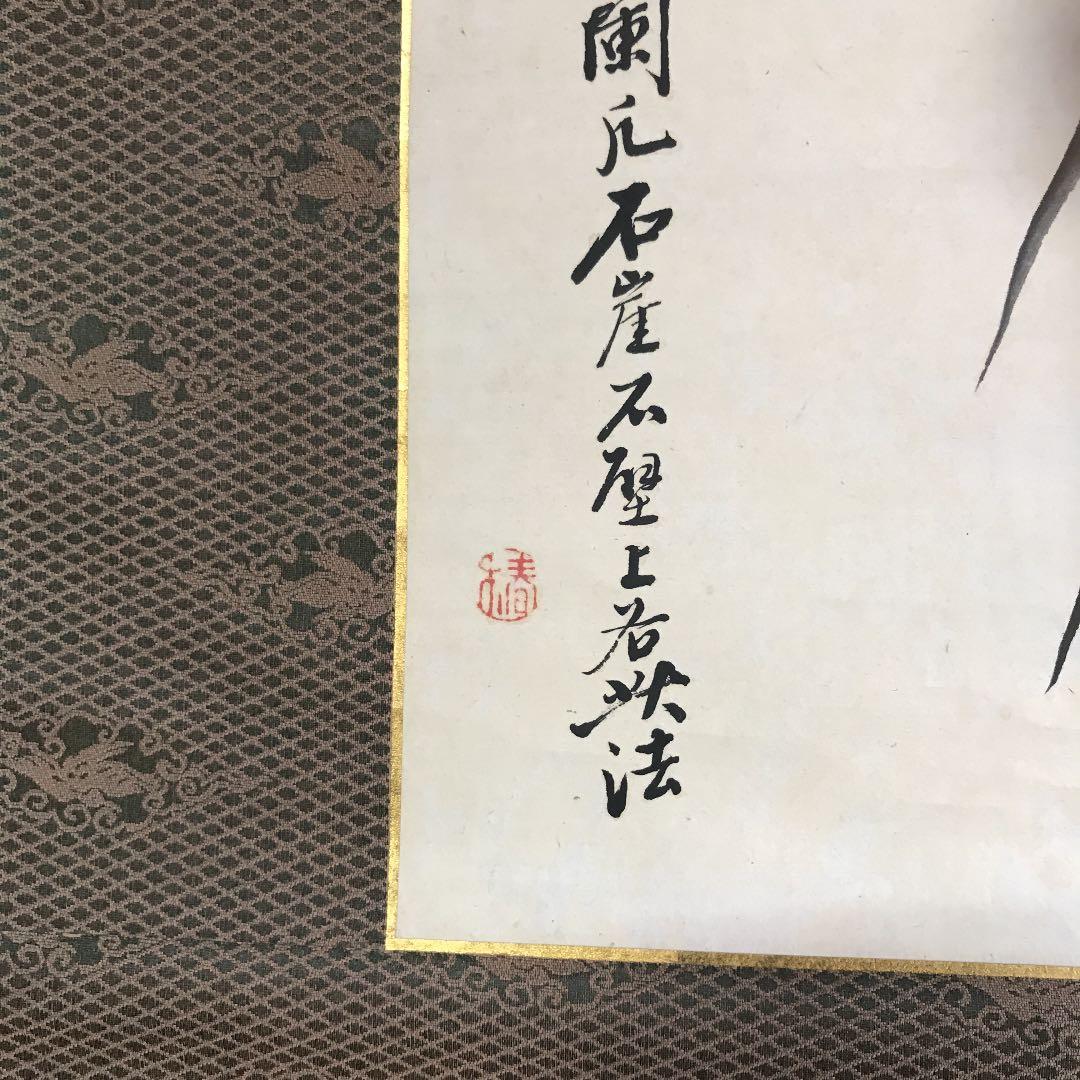 蘭凡石崖石壁上若法